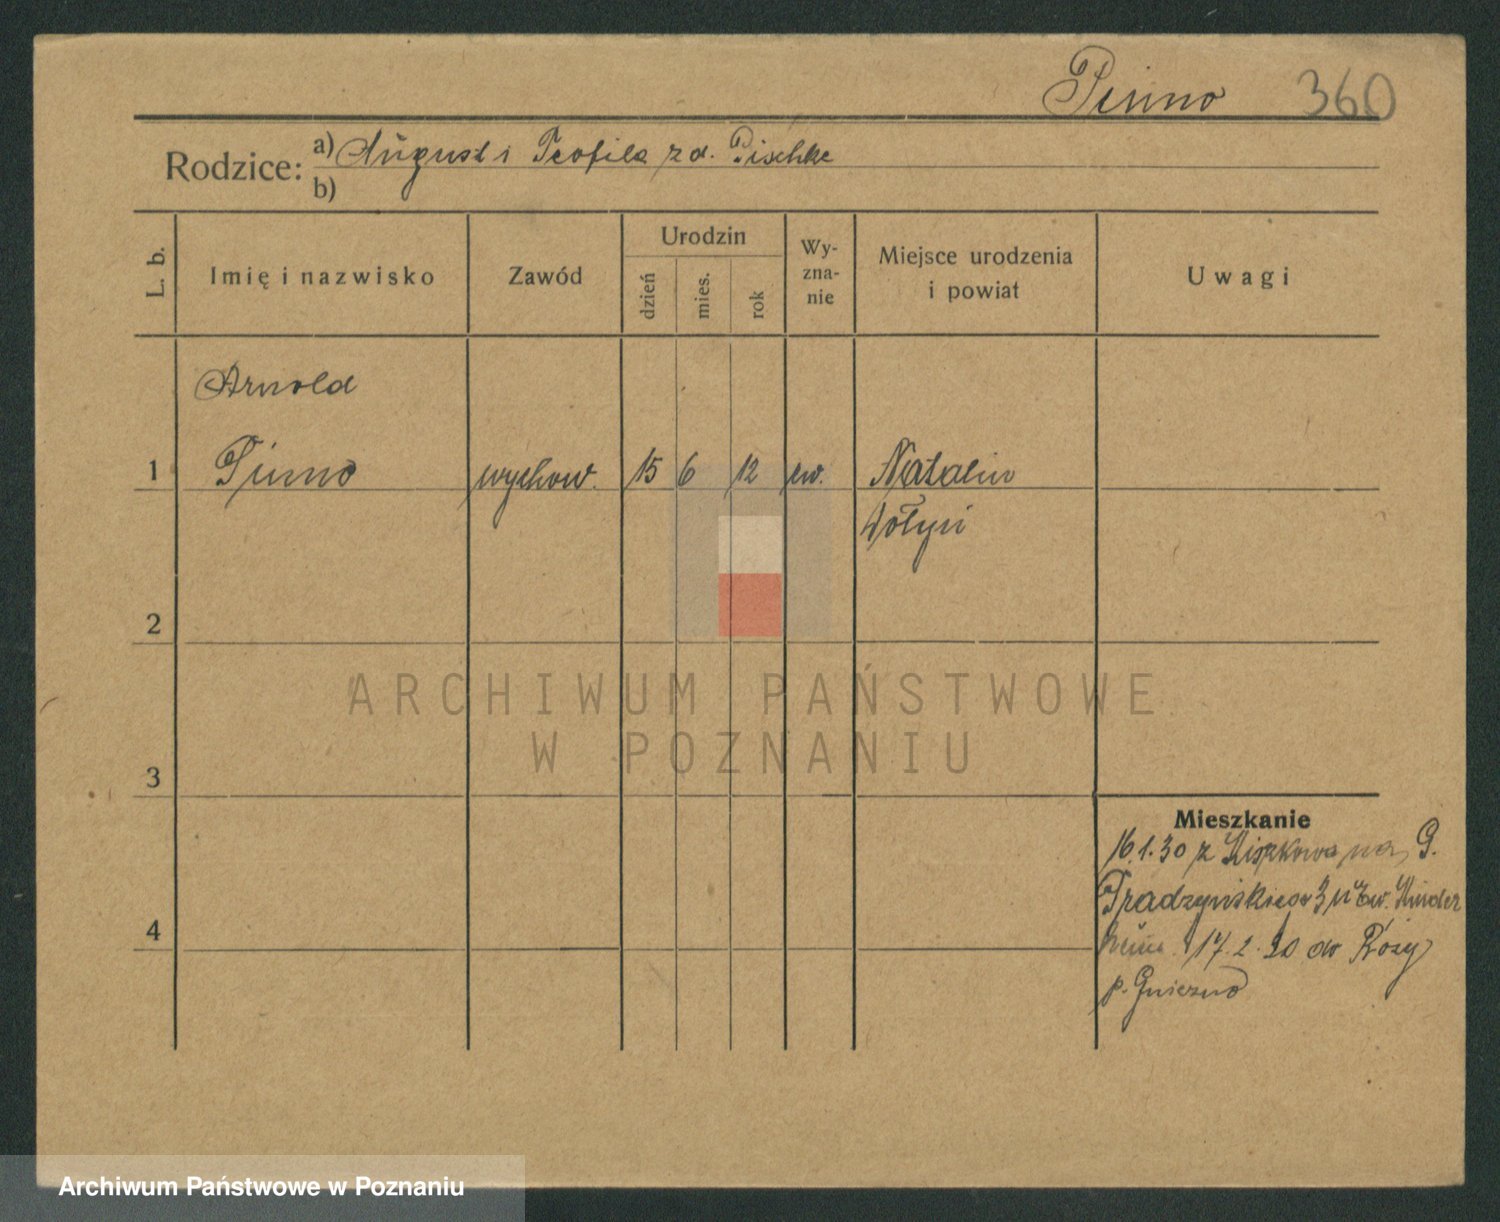 Pinno 360
Rodzice: a) August i Teofila z d. Pischke
b)
L. b.
Imię i nazwisko
Zawód
Urodzin
dzień
mies.
rok
Wy-
zna-
nie
Miejsce urodzenia
i powiat
Uwagi
Arnold
1 Pinno wychow. 15 6 12 ew. Natalin
Wołyń
2
ARCHIWUM PAŃSTWOWE
W POZNANIU
3
Mieszkanie
16.1.30 z Kiszkowa na G.
Pradzyńskiego 3 u Ew. Kinder
4
heim 17.2.30 do Róży
p. Gniezno
Archiwum Państwowe w Poznaniu